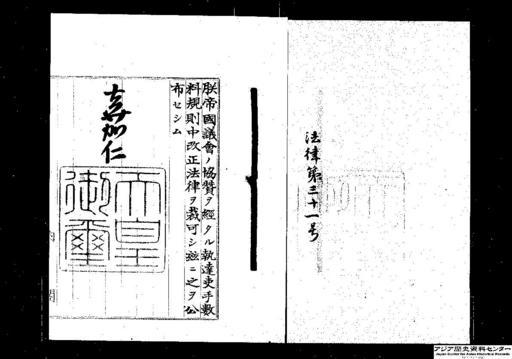 法律第三十一号
朕帝國議會ノ協贊ヲ經タル執達吏手數
料規則中改正法律ヲ裁可シ茲ニ之ヲ公
布セシム
嘉仁
天皇
御璽
アジア歴史資料センター
Japan Center for Asian Historical Records